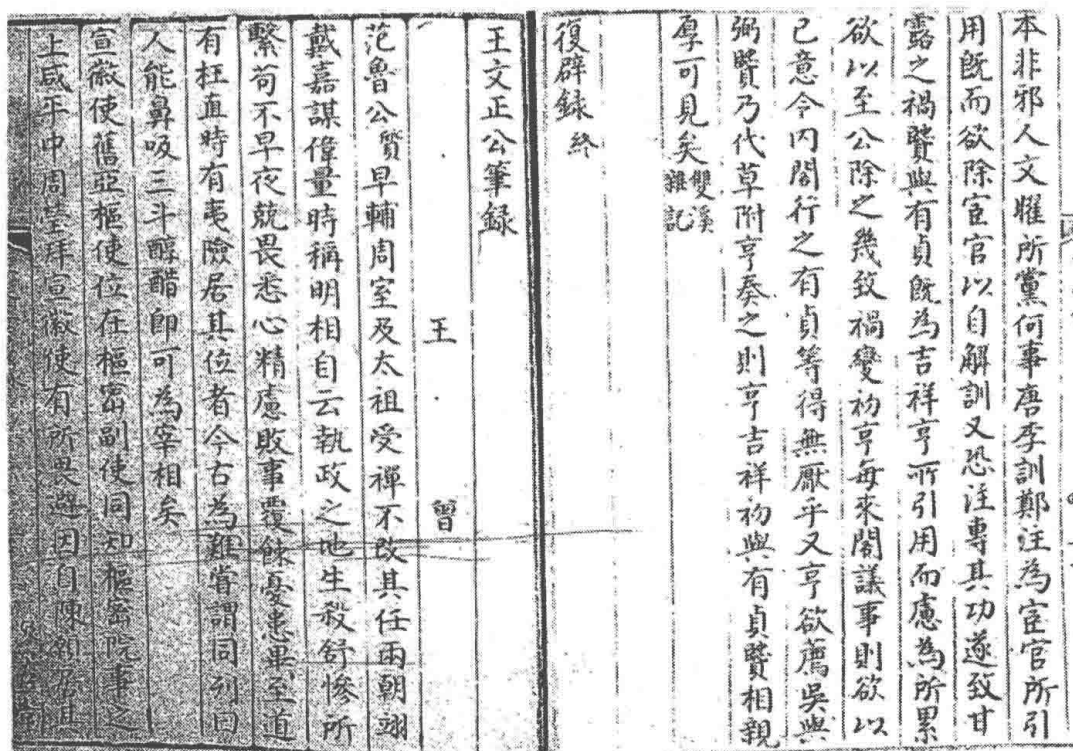 本非邪人文曜所黨何事唐李訓鄭注為宦官所引
用旣而欲除宦官以自解訓又恐注專其功遂致甘
露之禍賢與有貞旣為吉祥亨所引用而慮為所累
欲以至公除之幾致禍變初亨每來閣議事則欲以
已意令內閣行之有貞等得無厭乎又亨欲薦吳與
弼賢乃代草附亨奏之則亨吉祥初與有貞賢相親
厚可見矣雙溪雜記
復辟録終
王文正公筆録
王曾
范魯公質早輔周室及太祖受禪不改其任兩朝翊
戴嘉謀偉量時稱明相自云執政之地生殺舒慘所
繫苟不早夜兢畏悉心精慮敗事覆餗憂患畢至道
有枉直時有夷險居其位者今古為難嘗謂同列曰
人能鼻吸三斗醇醋即可為宰相矣
宣徽使舊亞樞使位在樞密副使同知樞密院事之
上咸平中周瑩拜宣徽使有所畏避因自陳